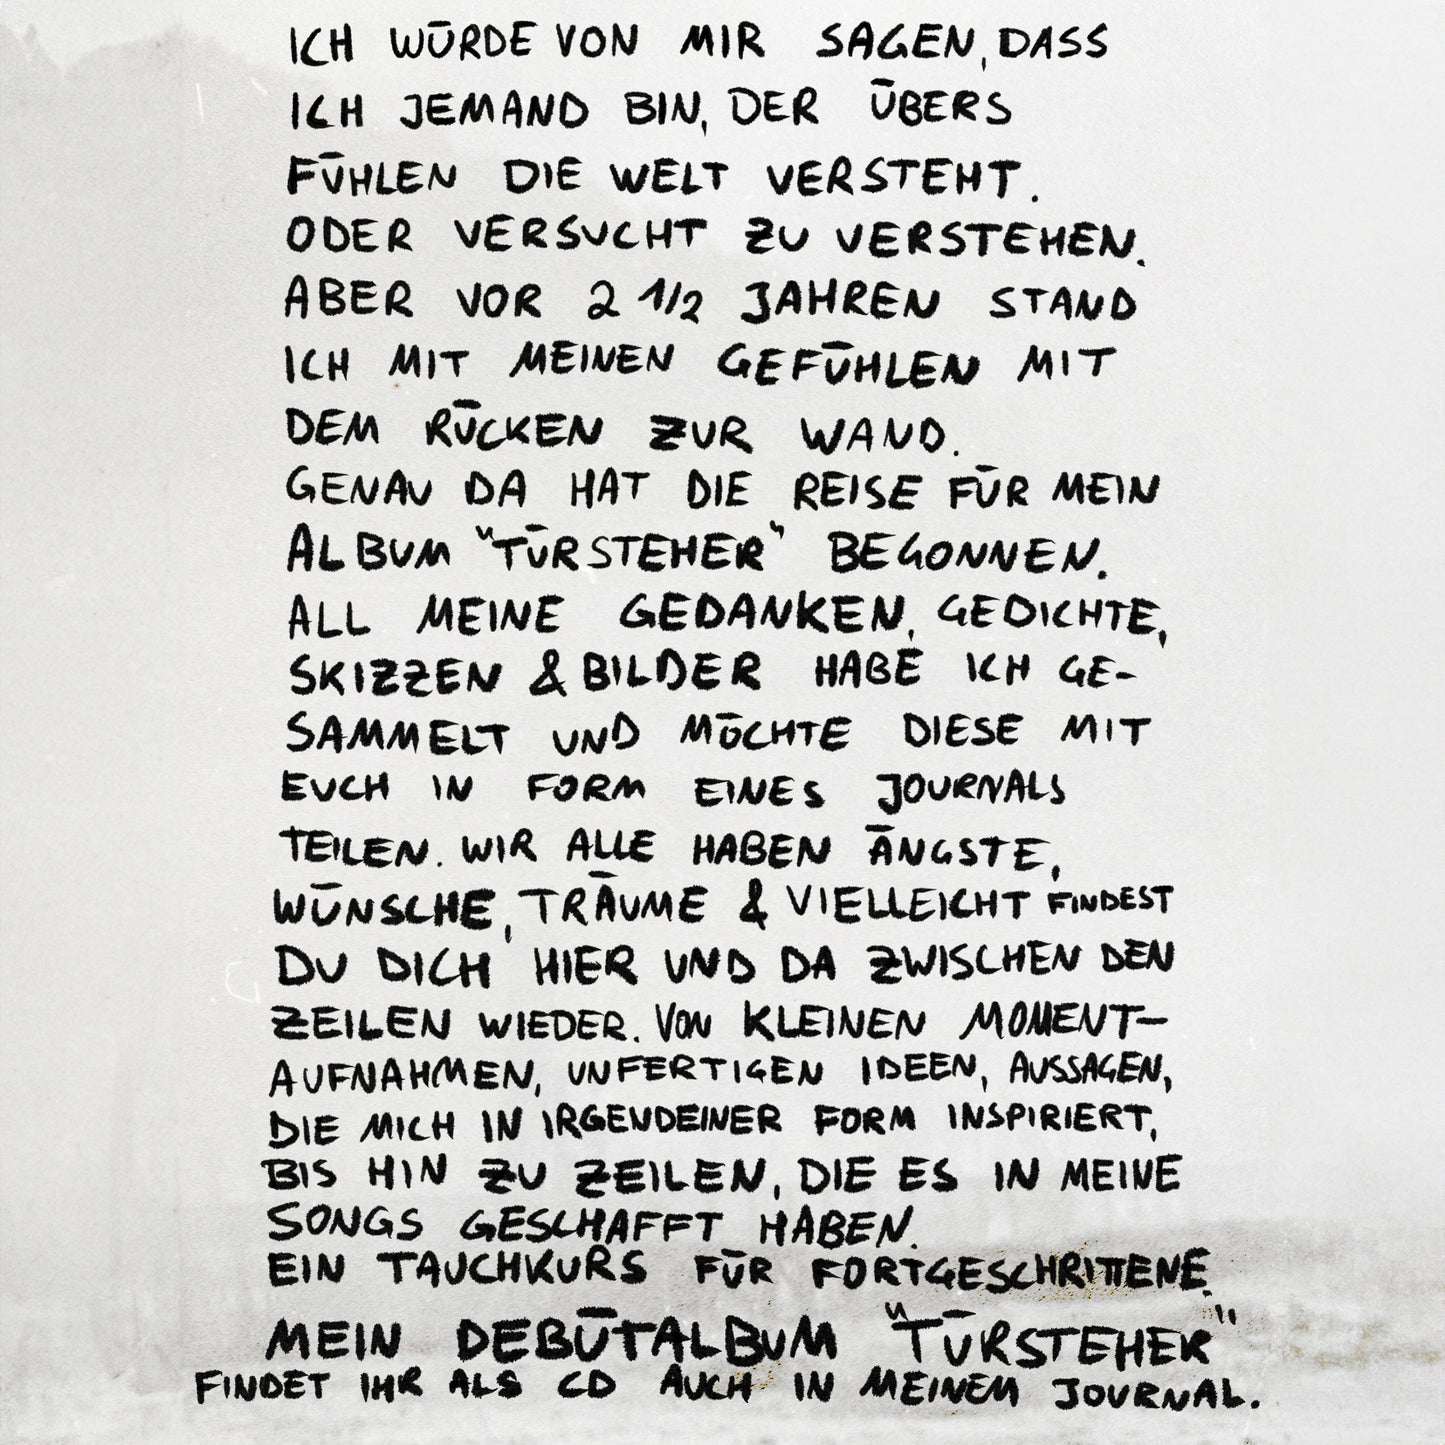 ICH WÜRDE VON MIR SAGEN, DASS
ICH JEMAND BIN, DER ÜBERS
FÜHLEN DIE WELT VERSTEHT.
ODER VERSUCHT ZU VERSTEHEN.
ABER VOR 2 1/2 JAHREN STAND
ICH MIT MEINEN GEFÜHLEN MIT
DEM RÜCKEN ZUR WAND.
GENAU DA HAT DIE REISE FÜR MEIN
ALBUM "TÜRSTEHER" BEGONNEN.
ALL MEINE GEDANKEN, GEDICHTE,
SKIZZEN & BILDER HABE ICH GE-
SAMMELT UND MÖCHTE DIESE MIT
EUCH IN FORM EINES JOURNALS
TEILEN. WIR ALLE HABEN ÄNGSTE,
WÜNSCHE, TRÄUME & VIELLEICHT FINDEST
DU DICH HIER UND DA ZWISCHEN DEN
ZEILEN WIEDER. VON KLEINEN MOMENT-
AUFNAHMEN, UNFERTIGEN IDEEN, AUSSAGEN,
DIE MICH IN IRGENDEINER FORM INSPIRIERT,
BIS HIN ZU ZEILEN, DIE ES IN MEINE
SONGS GESCHAFFT HABEN.
EIN TAUCHKURS FÜR FORTGESCHRITTENE.
MEIN DEBÜTALBUM "TÜRSTEHER"
FINDET IHR ALS CD AUCH IN MEINEM JOURNAL.